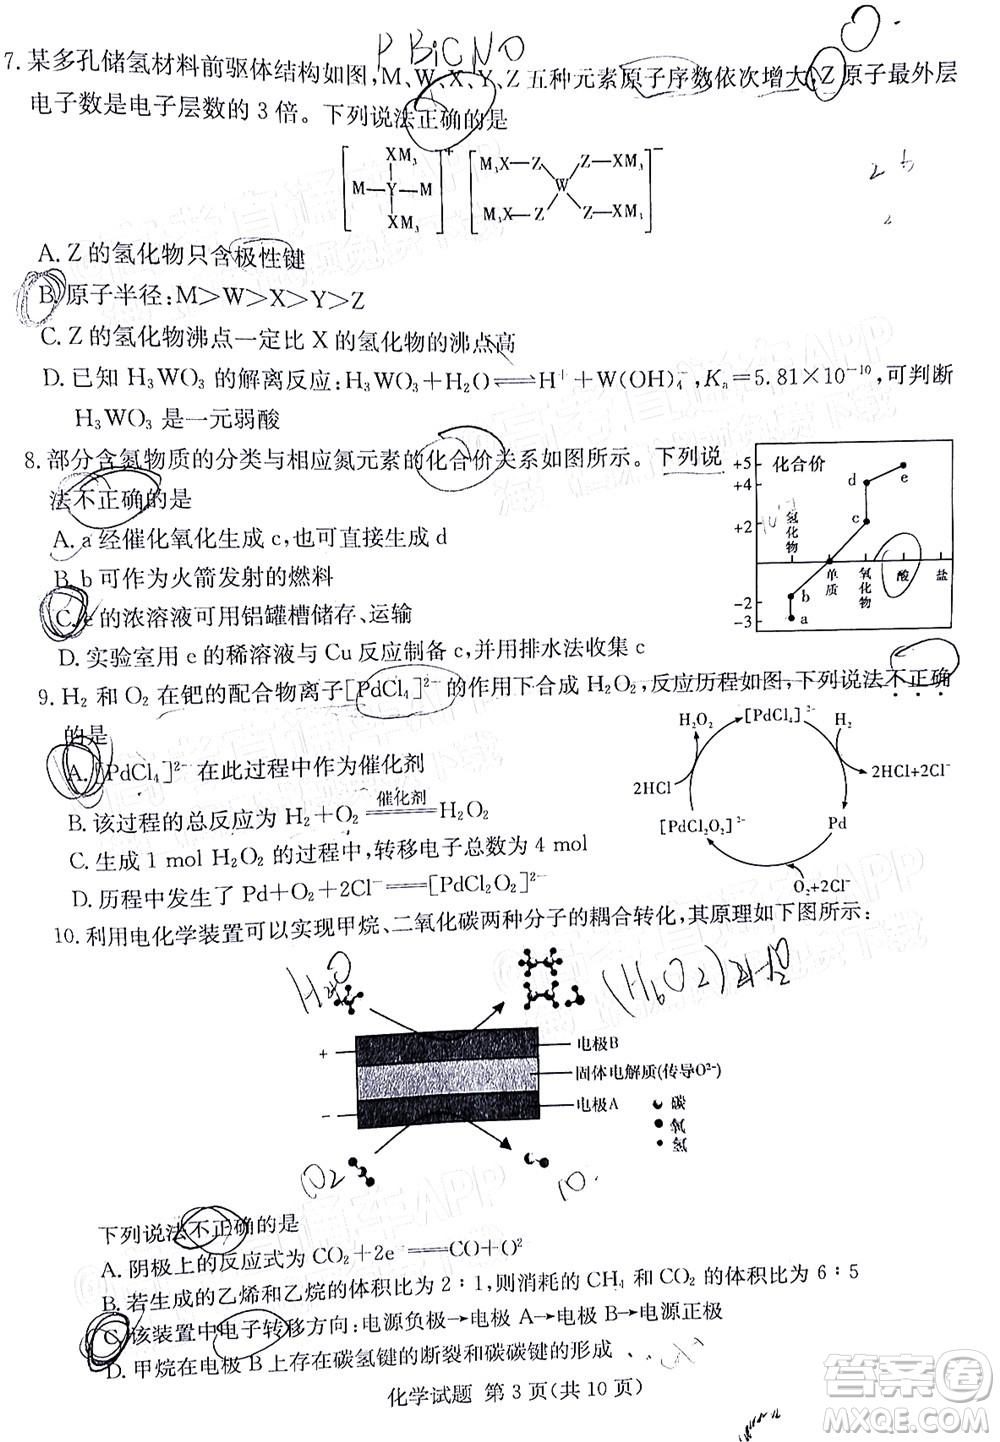 P BiCNO
7. 某多孔储氢材料前驱体结构如图,M、W、X、Y、Z 五种元素原子序数依次增大,Z 原子最外层
电子数是电子层数的 3 倍。下列说法正确的是
[ XM₃ M—Y—M XM₃ ]⁺ [ M₃X—Z Z—XM₃ W M₃X—Z Z—XM₃ ]⁻
A. Z 的氢化物只含极性键
B. 原子半径:M>W>X>Y>Z
C. Z 的氢化物沸点一定比 X 的氢化物的沸点高
D. 已知 H₃WO₃ 的解离反应:H₃WO₃+H₂O⇌H⁺+W(OH)₄⁻,Kₐ=5.81×10⁻¹⁰,可判断
H₃WO₃ 是一元弱酸
8. 部分含氮物质的分类与相应氮元素的化合价关系如图所示。下列说
法不正确的是
A. a 经催化氧化生成 c,也可直接生成 d
B. b 可作为火箭发射的燃料
C. e 的浓溶液可用铝罐槽储存、运输
D. 实验室用 e 的稀溶液与 Cu 反应制备 c,并用排水法收集 c
化合价
+5
+4
+2
-2
-3
a
b
c
d
e
氢化物
单质
氧化物
酸
盐
9. H₂ 和 O₂ 在钯的配合物离子[PdCl₄]²⁻ 的作用下合成 H₂O₂,反应历程如图,下列说法不正确
的是
A. [PdCl₄]²⁻ 在此过程中作为催化剂
B. 该过程的总反应为 H₂+O₂ 催化剂═══ H₂O₂
C. 生成 1 mol H₂O₂ 的过程中,转移电子总数为 4 mol
D. 历程中发生了 Pd+O₂+2Cl⁻═══[PdCl₂O₂]²⁻
H₂O₂
[PdCl₄]²⁻
H₂
2HCl
2HCl+2Cl⁻
[PdCl₂O₂]²⁻
Pd
O₂+2Cl⁻
10. 利用电化学装置可以实现甲烷、二氧化碳两种分子的耦合转化,其原理如下图所示:
+
电极B
固体电解质(传导O²⁻)
−
电极A
碳
氧
氢
O2
下列说法不正确的是
A. 阴极上的反应式为 CO₂+2e⁻═══CO+O²⁻
B. 若生成的乙烯和乙烷的体积比为 2∶1,则消耗的 CH₄ 和 CO₂ 的体积比为 6∶5
C. 该装置中电子转移方向:电源负极→电极 A→电极 B→电源正极
D. 甲烷在电极 B 上存在碳氢键的断裂和碳碳键的形成
化学试题 第 3 页(共 10 页)
答案圈
MXQE.COM